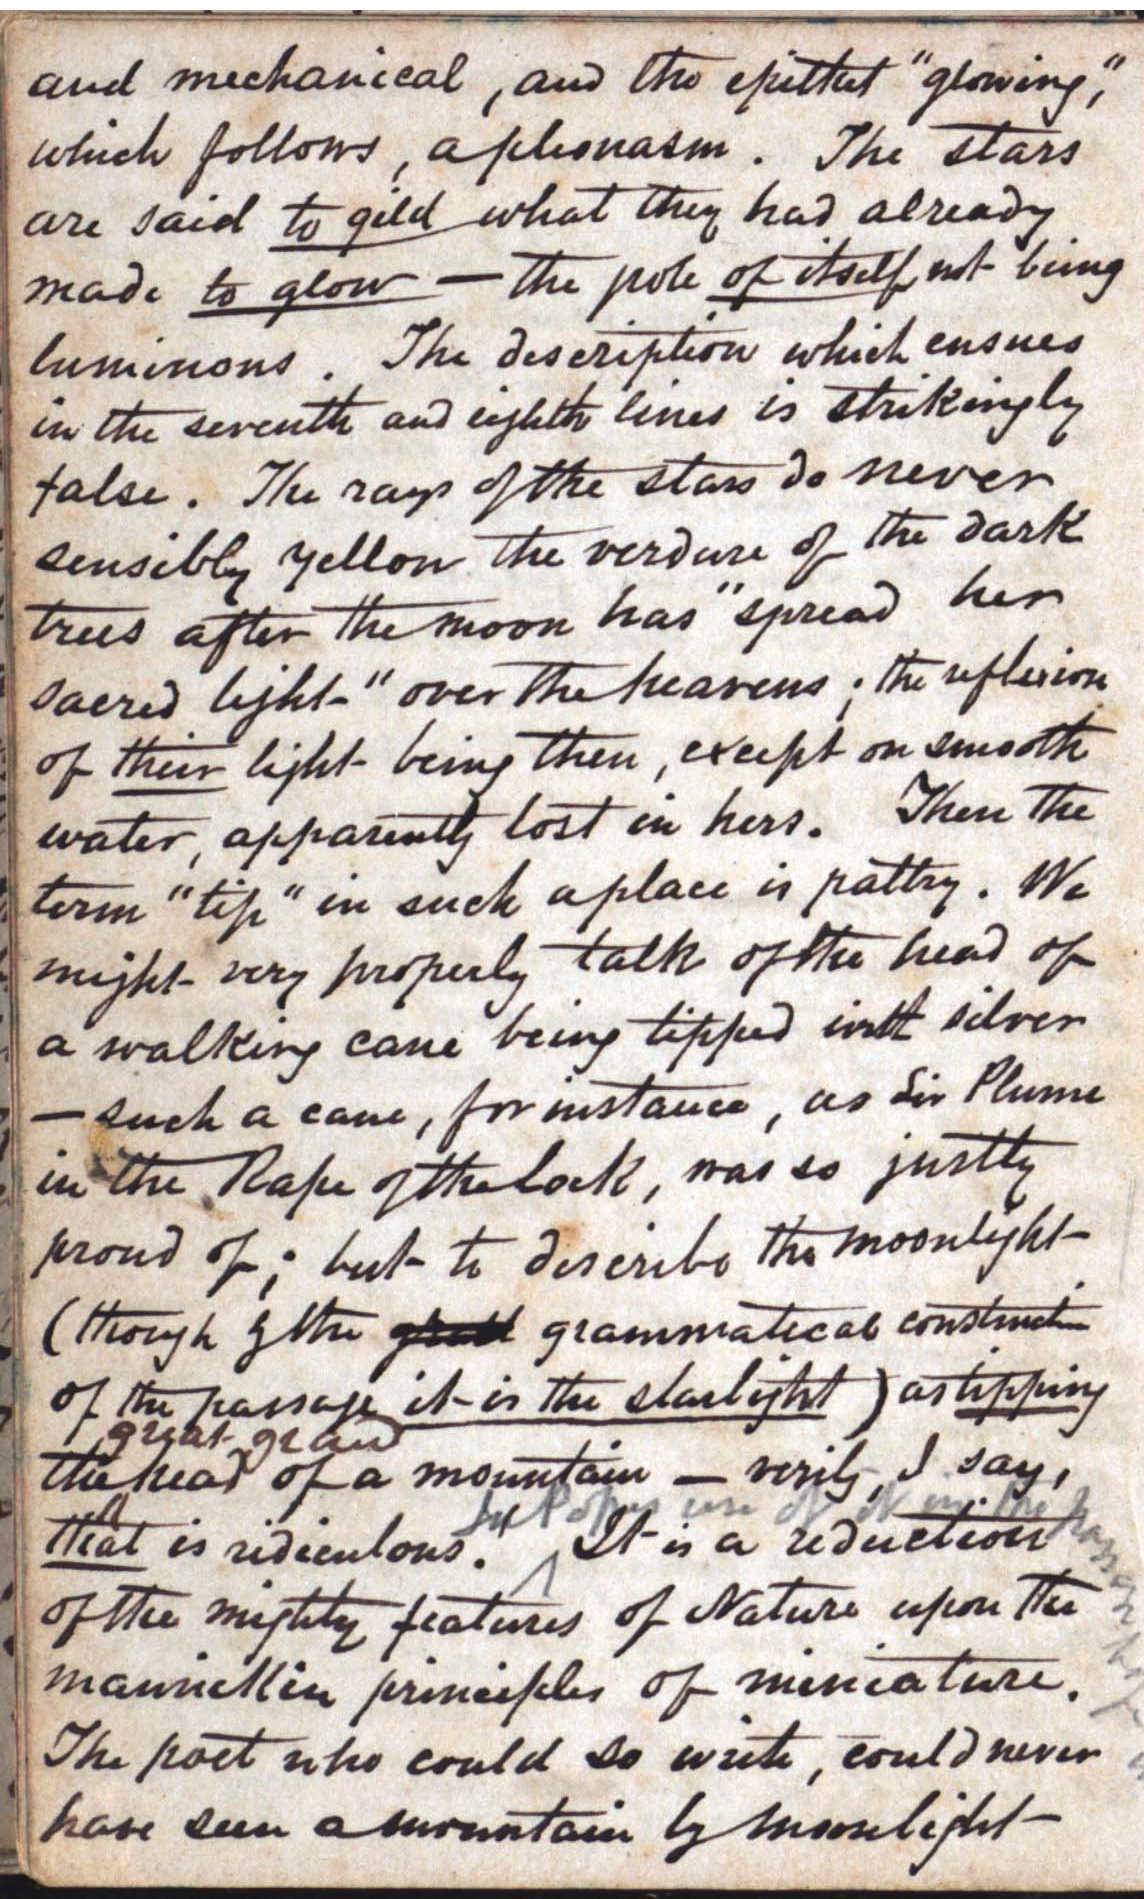 and mechanical, and the epithet "glowing",
which follows, a pleonasm. The stars
are said to gild what they had already
made to glow — the pole of itself not being
luminous. The description which ensues
in the seventh and eighth lines is strikingly
false. The rays of the stars do never
sensibly yellow the verdure of the dark
trees after the moon has "spread her
sacred light" over the heavens; the reflexion
of their light being then, except on smooth
water, apparently lost in hers. Then the
term "tip" in such a place is paltry. We
might very properly talk of the head of
a walking cane being tipped with silver
— such a cane, for instance, as Sir Plume
in the Rape of the Lock, was so justly
proud of; but to describe the moonlight
(though by the grammatical construction
of the passage it is the starlight) as tipping
great grand
the head of a mountain — verily, I say,
Pope's use of it in the
that is ridiculous." It is a reduction
of the mighty features of Nature upon the
mannickin principles of miniature.
The poet who could so write, could never
have seen a mountain by moonlight